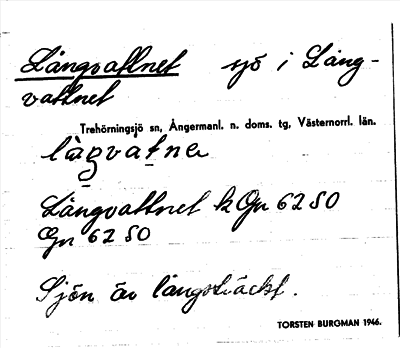 Långvattnet sjö i Lång-
vattnet
Trehörningsjö sn, Ångermanl. n. doms. tg, Västernorrl. län.
Långvattnet k Gn 62 SO
Gn 62 SO
Sjön är långsträckt.
TORSTEN BURGMAN 1946.